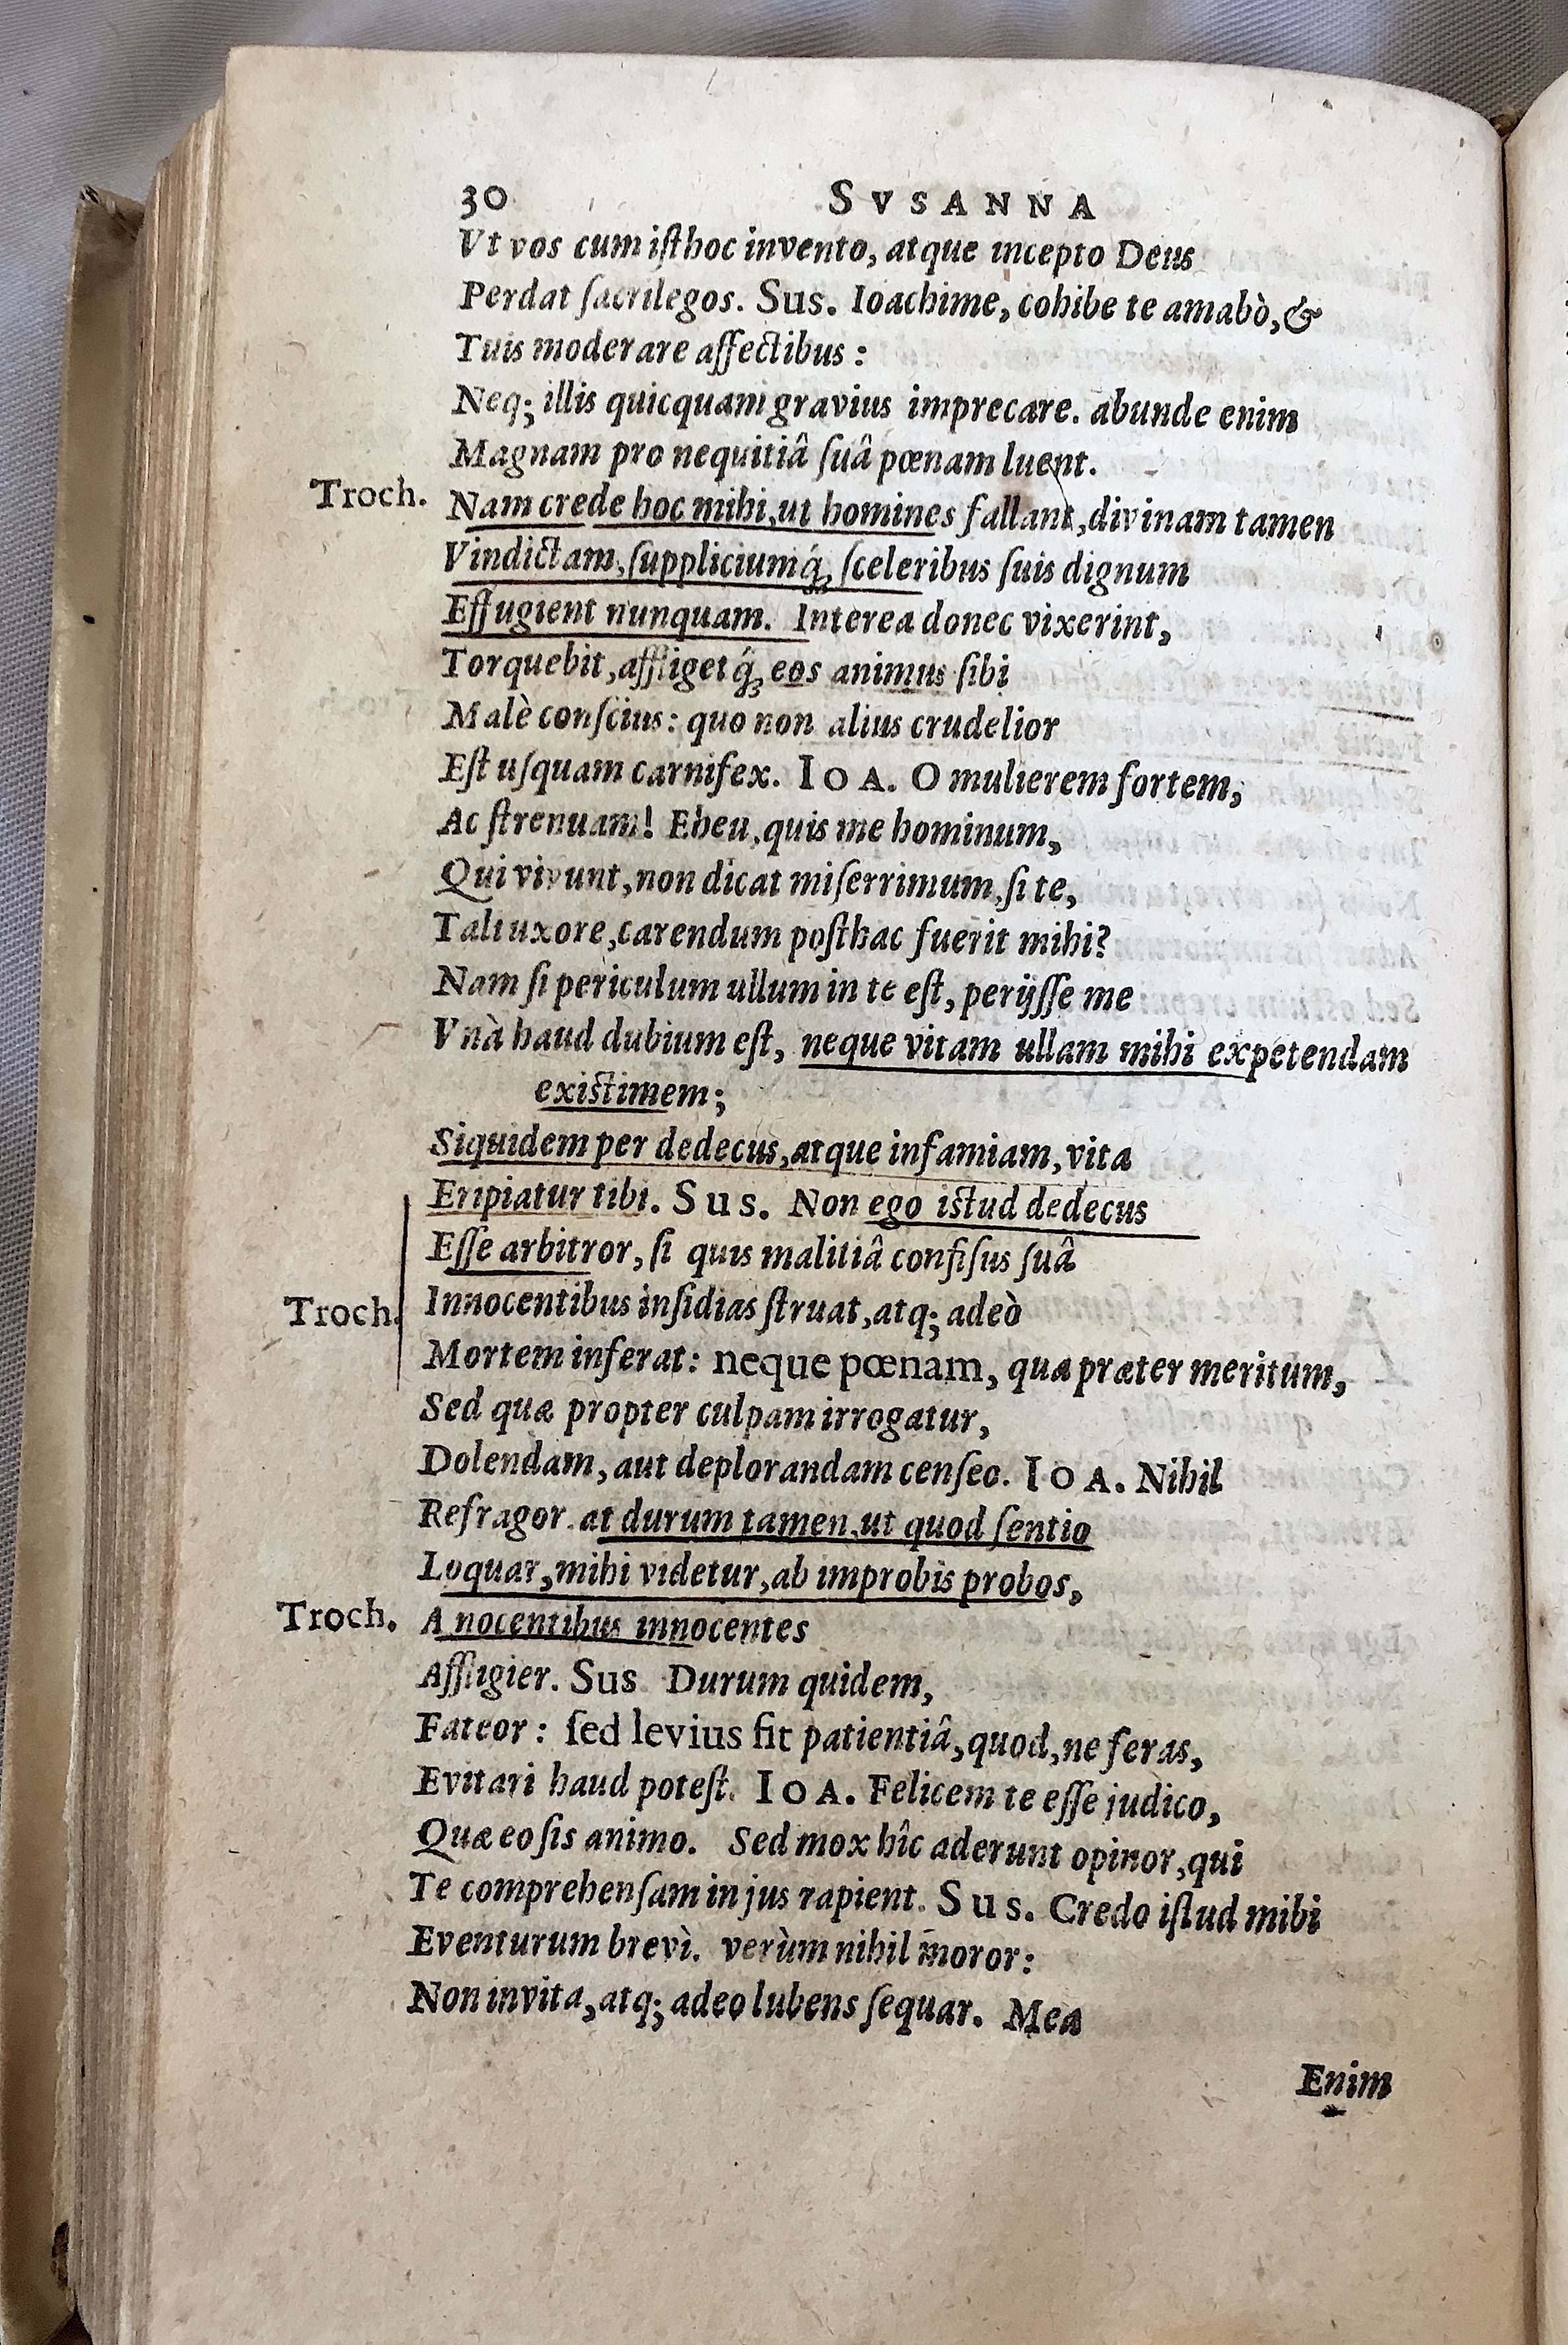 30 SVSANNA
Vt vos cum isthoc invento, atque incepto Deus
Perdat sacrilegos. Sus. Ioachime, cohibe te amabò, &
Tuis moderare affectibus:
Neq; illis quicquam gravius imprecare. abunde enim
Magnam pro nequitiâ suâ pœnam luent.
Troch. Nam crede hoc mihi, ut homines fallant, divinam tamen
Vindictam, suppliciumq́; sceleribus suis dignum
Effugient nunquam. Interea donec vixerint,
Torquebit, affligetq́; eos animus sibi
Malè conscius: quo non alius crudelior
Est usquam carnifex. IOA. O mulierem fortem,
Ac strenuam! Eheu, quis me hominum,
Qui vivunt, non dicat miserrimum, si te,
Tali uxore, carendum posthac fuerit mihi?
Nam si periculum ullum in te est, perijsse me
Vnà haud dubium est, neque vitam ullam mihi expetendam
existimem;
Siquidem per dedecus, atque infamiam, vita
Eripiatur tibi. Sus. Non ego istud dedecus
Esse arbitror, si quis malitiâ confisus suâ
Troch. Innocentibus insidias struat, atq; adeò
Mortem inferat: neque pœnam, quæ præter meritum,
Sed quæ propter culpam irrogatur,
Dolendam, aut deplorandam censeo. IOA. Nihil
Refragor. at durum tamen, ut quod sentio
Loquar, mihi videtur, ab improbis probos,
Troch. A nocentibus innocentes
Affligier. Sus. Durum quidem,
Fateor: sed levius fit patientiâ, quod, ne feras,
Evitari haud potest. IOA. Felicem te esse judico,
Quæ eo sis animo. Sed mox hîc aderunt opinor, qui
Te comprehensam in jus rapient. Sus. Credo istud mihi
Eventurum brevì. verùm nihil moror:
Non invita, atq; adeo lubens sequar. Mea
Enim